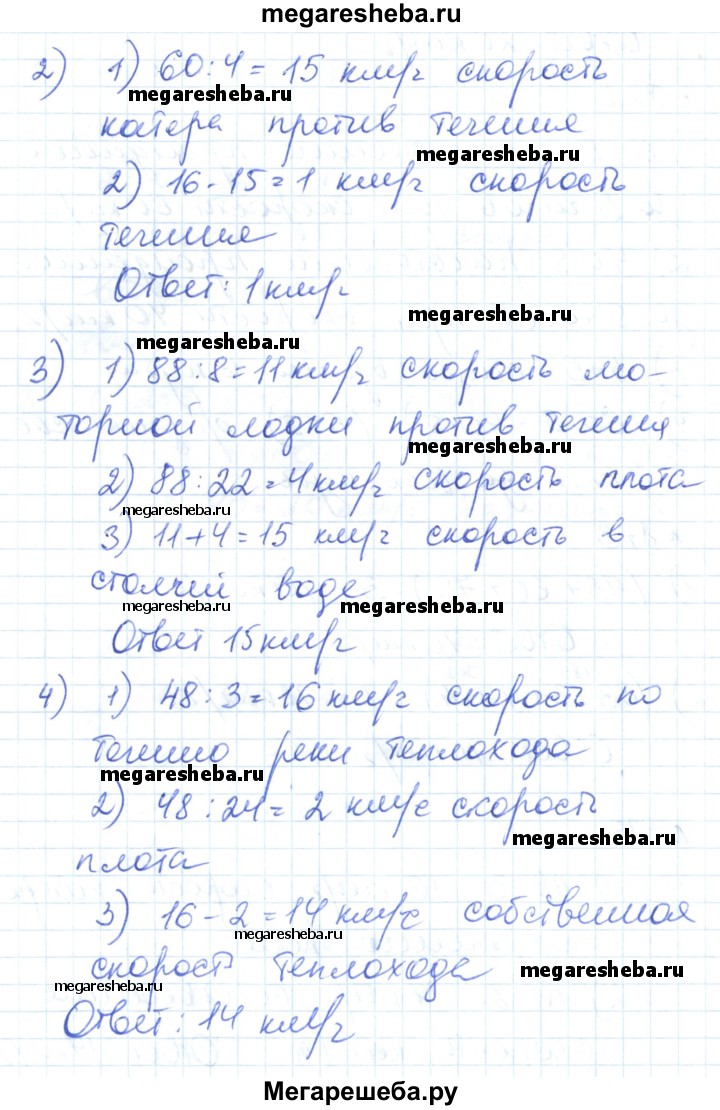 megaresheba.ru
2) 1) 60:4=15 км/г скорость
megaresheba.ru
катера против течения
megaresheba.ru
2) 16-15=1 км/г скорость
течения
Ответ: 1 км/г
megaresheba.ru
megaresheba.ru
3) 1) 88:8=11 км/г скорость мо-
торной лодки против течения
megaresheba.ru
2) 88:22=4 км/г скорость плота
megaresheba.ru
3) 11+4=15 км/г скорость в
стоячий воде
megaresheba.ru
megaresheba.ru
Ответ 15 км/г
4) 1) 48:3=16 км/г скорость по
megaresheba.ru
течению реки теплохода
megaresheba.ru
2) 48:24=2 км/с скорость
megaresheba.ru
плота
3) 16-2=14 км/с собственная
megaresheba.ru
скорость теплохода
megaresheba.ru
megaresheba.ru
Ответ: 14 км/г
Мегарешеба.ру